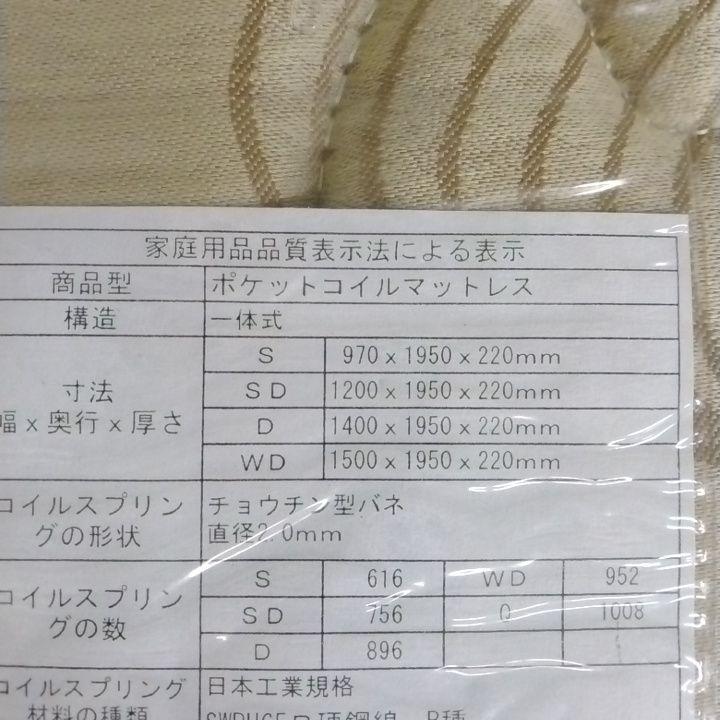 家庭用品品質表示法による表示
商品型 ポケットコイルマットレス
構造 一体式
寸法
幅x奥行x厚さ
S 970x1950x220mm
SD 1200x1950x220mm
D 1400x1950x220mm
WD 1500x1950x220mm
コイルスプリングの形状
チョウチン型バネ
直径2.0mm
コイルスプリン
グの数
S 616 WD 952
SD 756 Q 1008
D 896
コイルスプリング
材料の種類
日本工業規格
硬鋼線 B種